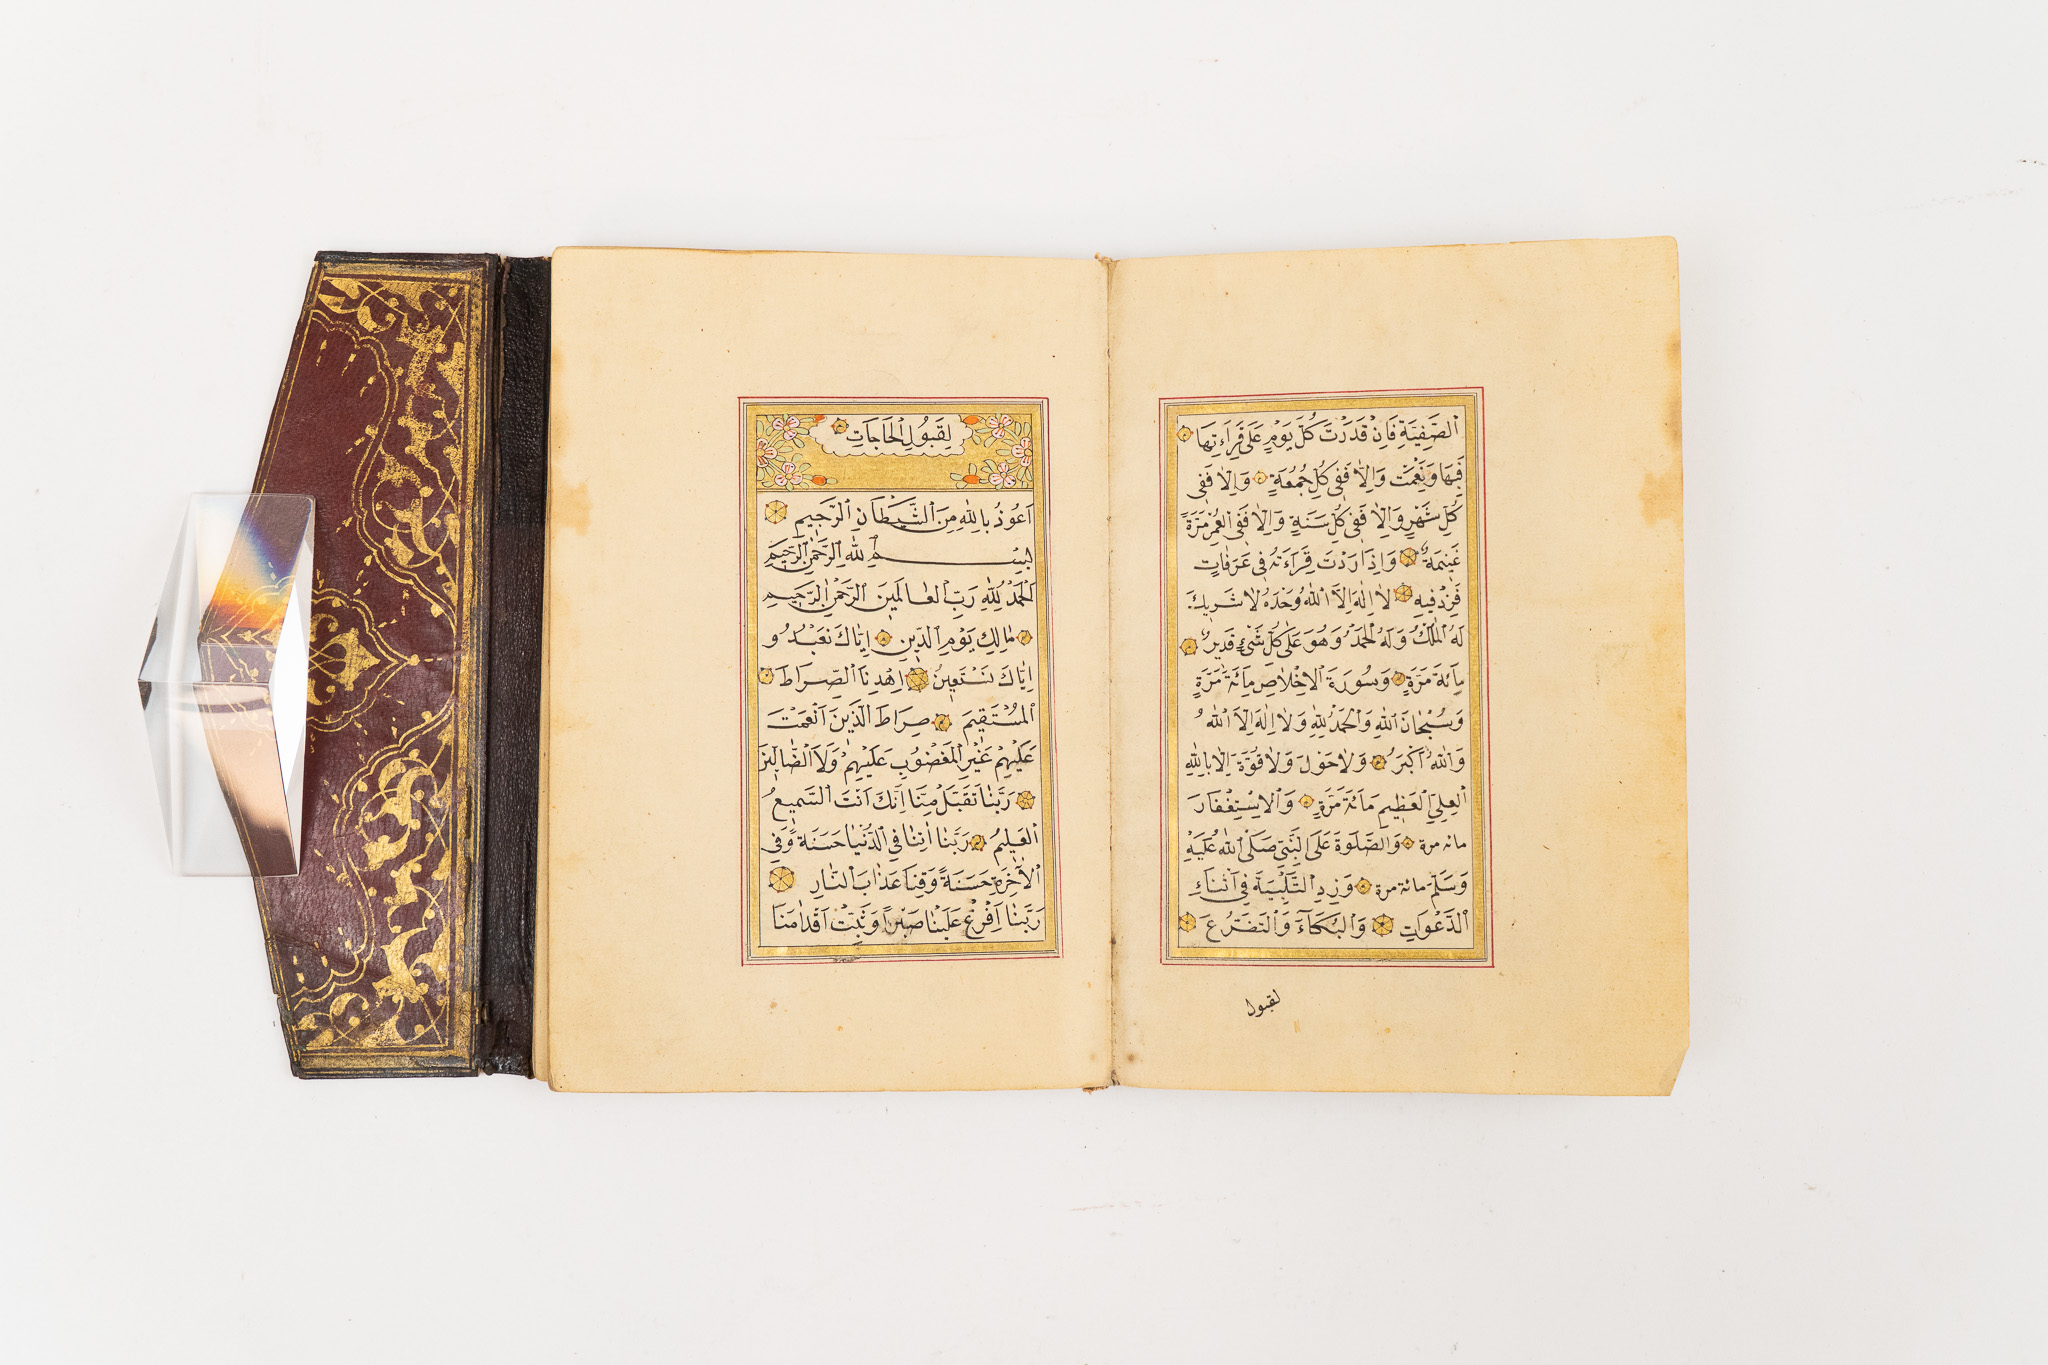 اَلصَّفِيَّةِ فَاِنْ قَدَرْتَ كُلَّ يَوْمٍ عَلٰى قِرَاءَتِهَا
فَبِهَا وَنِعْمَتْ وَاِلَّا فَفِى كُلِّ جُمُعَةٍ وَاِلَّا فَفِى
كُلِّ شَهْرٍ وَاِلَّا فَفِى كُلِّ سَنَةٍ وَاِلَّا فَفِى الْعُمْرِ مَرَّةً
غَنِيمَةٌ وَاِذَا رَدْتَ قِرَاءَتَهُ فِى عَرَفَاتٍ
فَزِدْ فِيهِ لَا اِلٰهَ اِلَّا اللّٰهُ وَحْدَهُ لَا شَرِيكَ
لَهُ الْمُلْكُ وَلَهُ الْحَمْدُ وَهُوَ عَلٰى كُلِّ شَىْءٍ قَدِيرٌ
مِائَةَ مَرَّةٍ وَسُورَةَ الْاِخْلَاصِ مِائَةَ مَرَّةٍ
وَسُبْحَانَ اللّٰهِ وَالْحَمْدُ لِلّٰهِ وَلَا اِلٰهَ اِلَّا اللّٰهُ
وَاللّٰهُ اَكْبَرُ وَلَا حَوْلَ وَلَا قُوَّةَ اِلَّا بِاللّٰهِ
الْعَلِىِّ الْعَظِيمِ مِائَةَ مَرَّةٍ وَالْاِسْتِغْفَارَ
مائة مرة وَالصَّلٰوةَ عَلَى النَّبِىِّ صَلَّى اللّٰهُ عَلَيْهِ
وَسَلَّمَ مائة مرة وَزِدِ التَّلْبِيَةَ فِى اَثْنَاءِ
الدَّعَوَاتِ وَالْبُكَاءَ وَالتَّضَرُّعَ
لقبول
لِقَبُولِ الْحَاجَاتِ
اَعُوذُ بِاللّٰهِ مِنَ الشَّيْطَانِ الرَّجِيمِ
بِسْمِ اللّٰهِ الرَّحْمٰنِ الرَّحِيمِ
اَلْحَمْدُ لِلّٰهِ رَبِّ الْعَالَمِينَ الرَّحْمٰنِ الرَّحِيمِ
مَالِكِ يَوْمِ الدِّينِ اِيَّاكَ نَعْبُدُ وَ
اِيَّاكَ نَسْتَعِينُ اِهْدِنَا الصِّرَاطَ
الْمُسْتَقِيمَ صِرَاطَ الَّذِينَ اَنْعَمْتَ
عَلَيْهِمْ غَيْرِ الْمَغْضُوبِ عَلَيْهِمْ وَلَا الضَّالِّينَ
رَبَّنَا تَقَبَّلْ مِنَّا اِنَّكَ اَنْتَ السَّمِيعُ
الْعَلِيمُ رَبَّنَا اٰتِنَا فِى الدُّنْيَا حَسَنَةً وَفِى
الْاٰخِرَةِ حَسَنَةً وَقِنَا عَذَابَ النَّارِ
رَبَّنَا اَفْرِغْ عَلَيْنَا صَبْرًا وَثَبِّتْ اَقْدَامَنَا